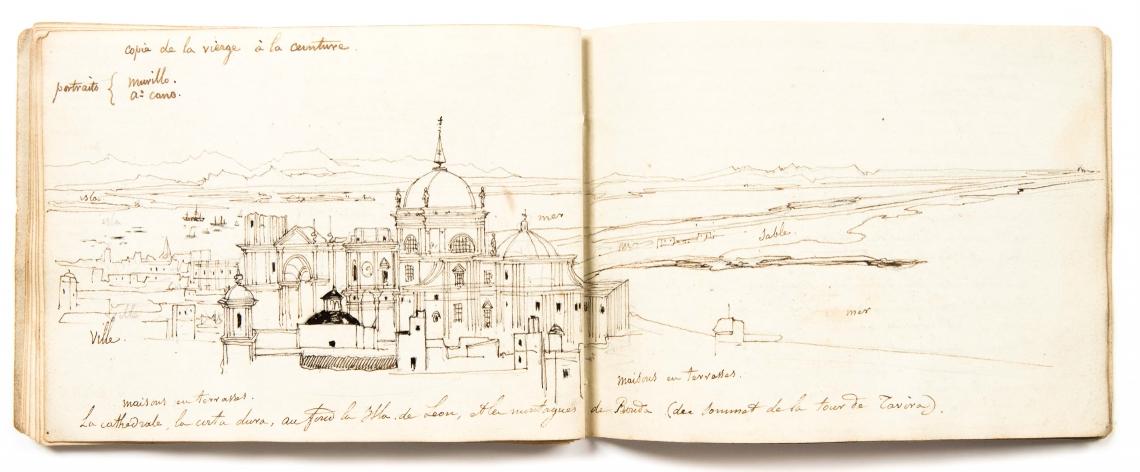 copie de la vierge à la ceinture.
portraits { murillo.
aº cano.
isla
isla
mer
mer
Sable.
mer
ville
Ville.
maisons en terrasses.
maisons en terrasses.
La cathédrale, la corta dura, au fond la Isla de Leon, et les montagnes de Ronda (du sommet de la tour de Tavira).